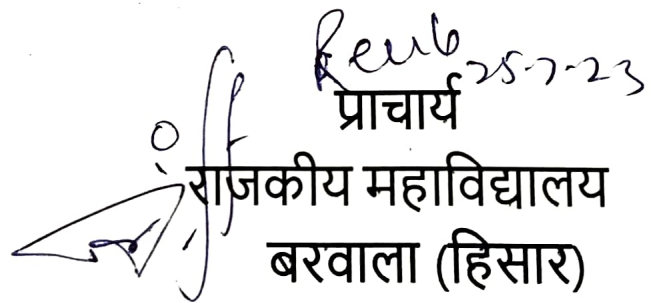 25-7-23
प्राचार्य
राजकीय महाविद्यालय
बरवाला (हिसार)